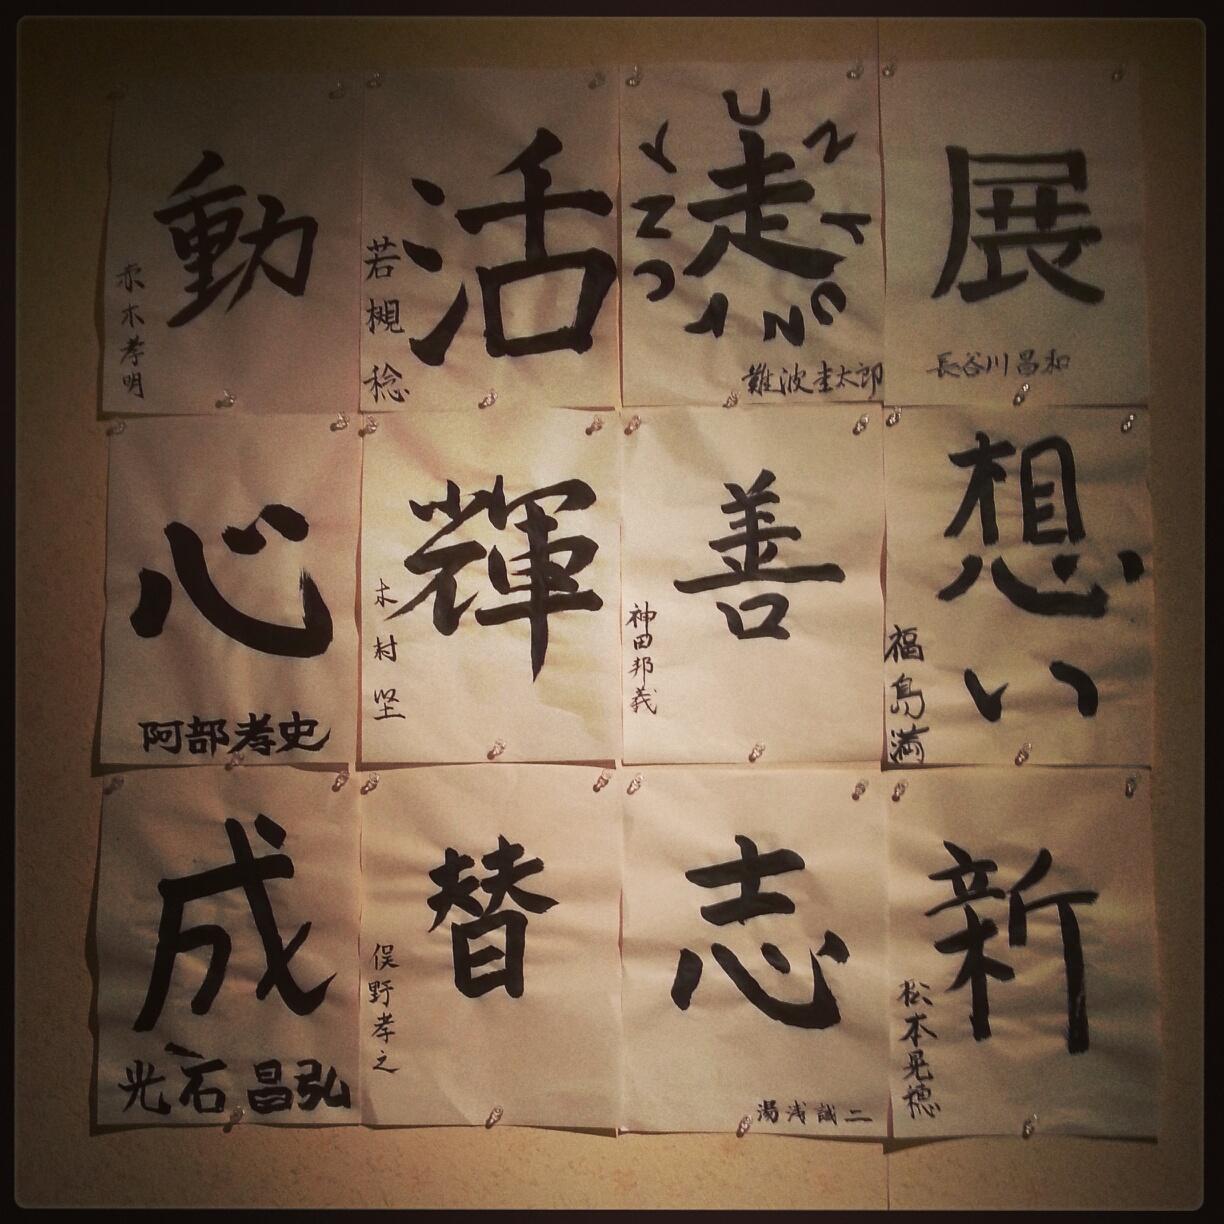 動
赤木孝明
活
若槻稔
走
難波圭太郎
展
長谷川昌和
心
阿部孝史
輝
木村坚
善
神田邦義
想い
福島満
成
光石昌弘
替
俣野孝之
志
湯浅誠二
新
松本晃穂